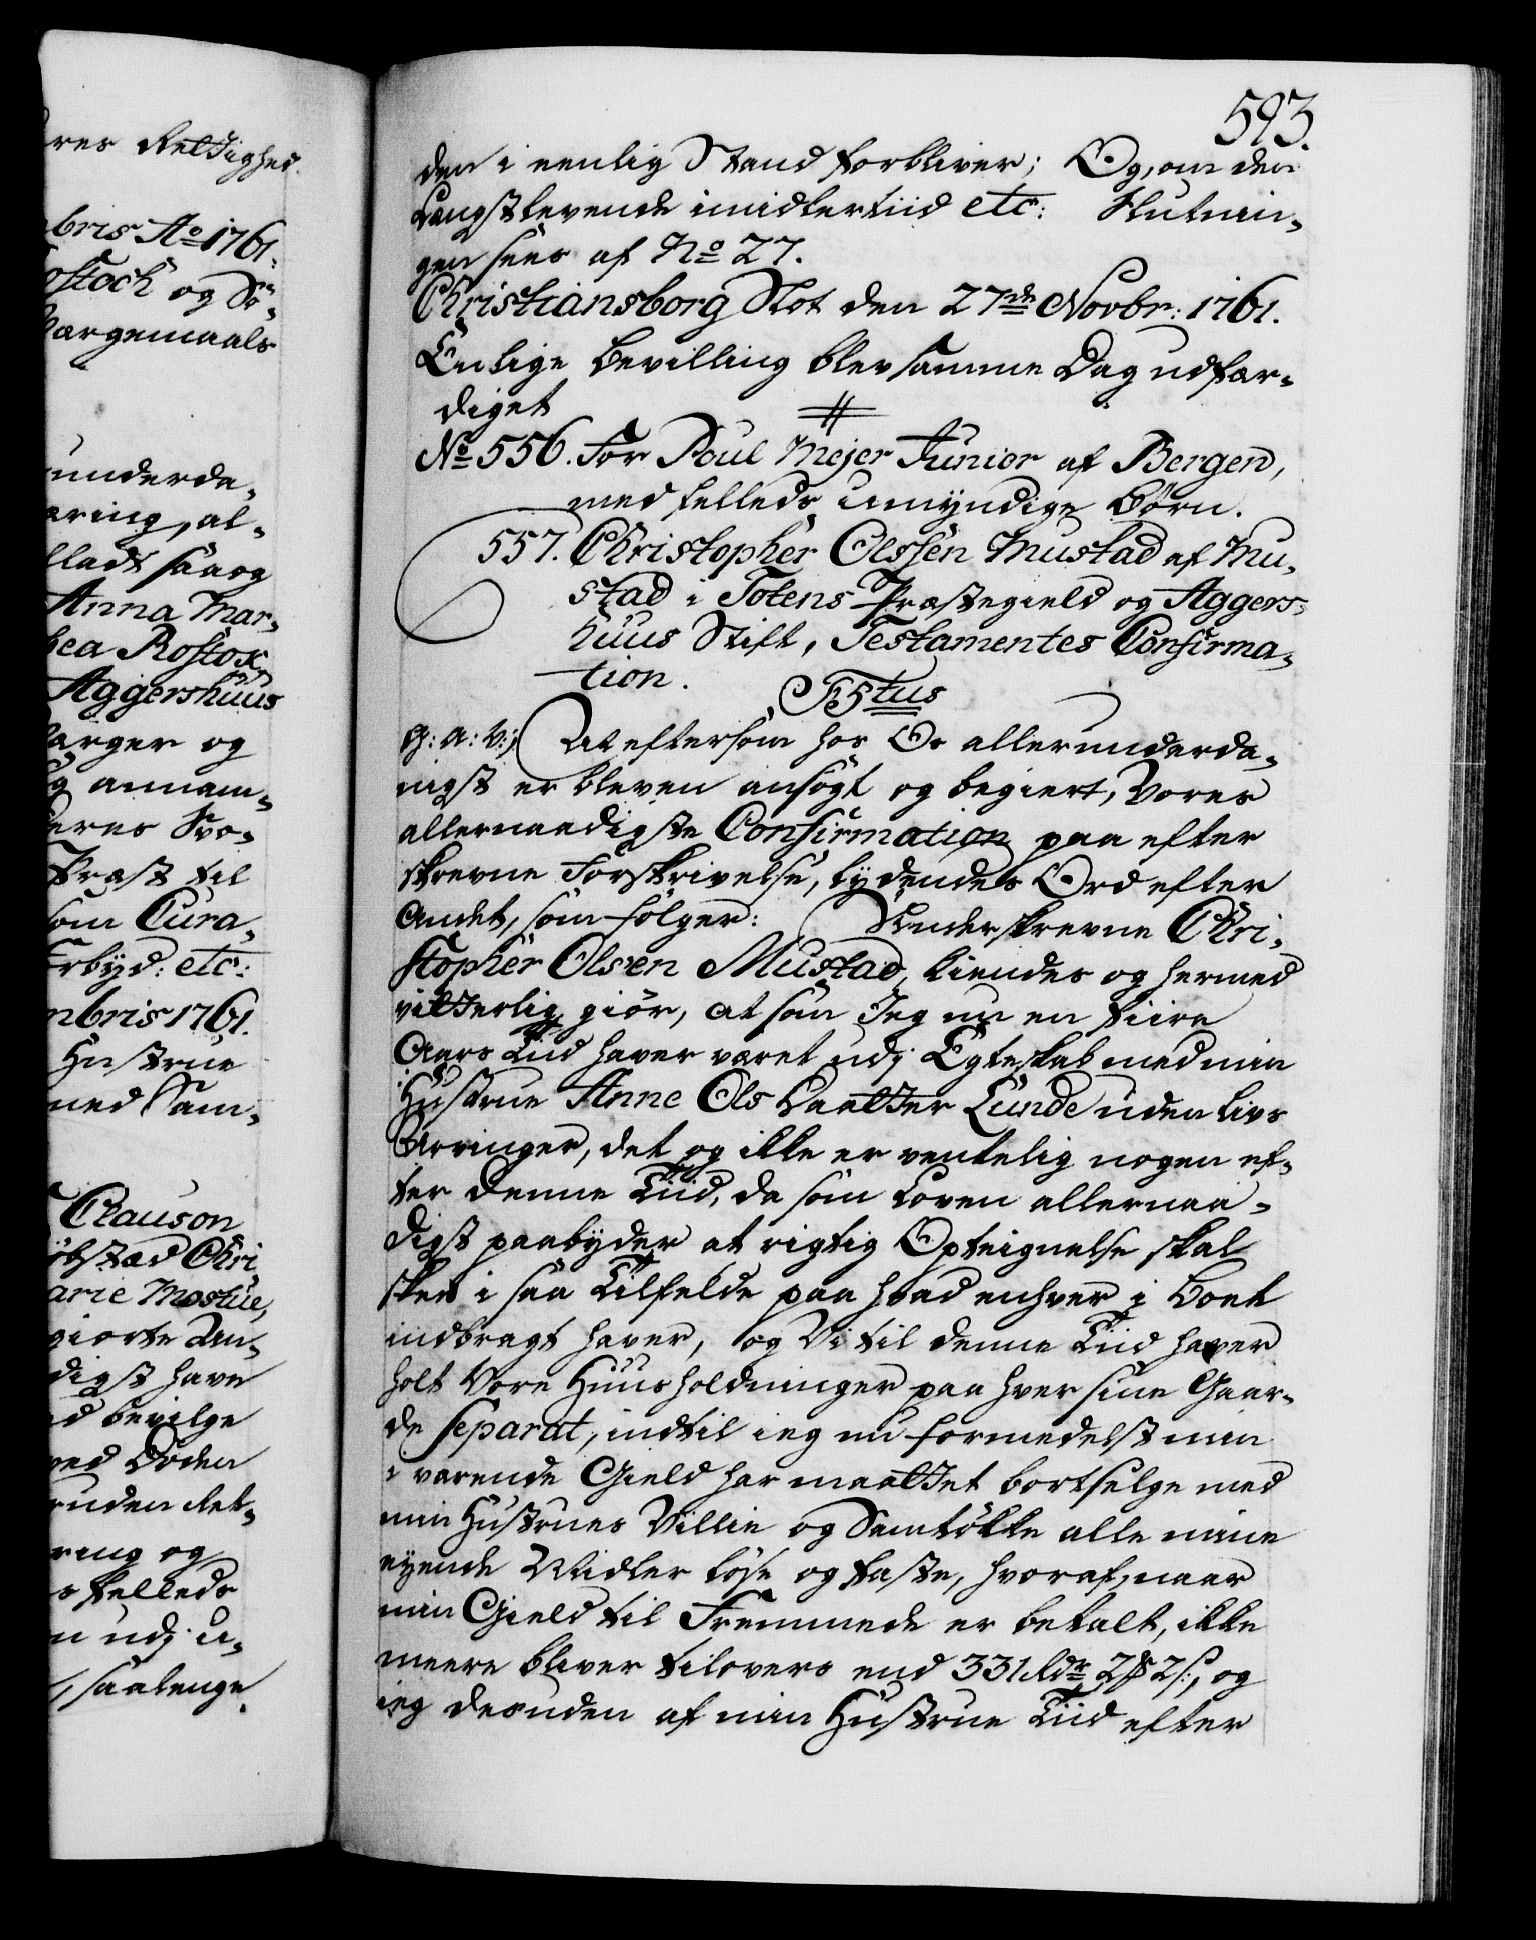 res Rettighed.
bris Ao 1761.
ostock og Sö-
Værgemaals
underda-
æring, al-
lladt saa og
Anna Mar-
hea Rostox
Aggershuus
værger og
g annam-
deres Svo-
Præst til
som Cura-
Forbyd: etc:
mbris 1761.
Hustrue
med Sam-
Clauson
öbstæd Chri
arie Mostue,
giorte An-
digst have
d bevilge
ved Döden
uden Ret-
ring og
s felleds
n udj U-
, saalenge
593.
den i eenlig Stand forbliver; Og, om den
Længstlevende imidlertiid etc: Slutnin-
gen sees af No 27.
Christiansborg Slot den 27de Novbr: 1761.
Liilige Bevilling blev samme Dag udfær-
diget
No 556. For Poul Mejer Junior af Bergen,
med felleds umyndige Börn.
557. Christopher Olssen Mustad af Mu-
stad i Totens Præstegield og Aggers-
huus Stift, Testamentes Confirma-
tion.
F5tus
G: A: V:, At eftersom hos Os allerunderda-
nigst er bleven ansögt og begiert, Vores
allernaadigste Confirmation paa efter
skrevne Forskrivelse, lydendes Ord efter
Andet, som fölger: Underskrevne Chri-
stopher Olsen Mustad, kiendes og hermed
vitterlig giör, at som Jeg nu en fiire
Aars Tiid haver været udj Egteskab med min
Hustrue Anne Ols Daatter Lunde uden Livs
Arvinger, det og ikke er ventelig nogen ef-
ter denne Tiid, da som Loven allernaa-
digst paabyder at rigtig Opteignelse skal
skee i saa Tilfelde paa hvad enhver i Boet
indbragt haver, og Vi til denne Tiid haver
holt Vore Huusholdninger paa hver sine Gaar-
de separat, indtil ieg nu formedelst min
værende Gield har maattet bortselge med
min Hustrues Villie og Samtökke alle mine
eyende Midler löse og faste, hvoraf, naar
min Gield til Fremmede er betalt, ikke
meere bliver tilovers end 331 Rdr 2 # 2 s:, og
ieg desuden af min Hustrue Tiid efter